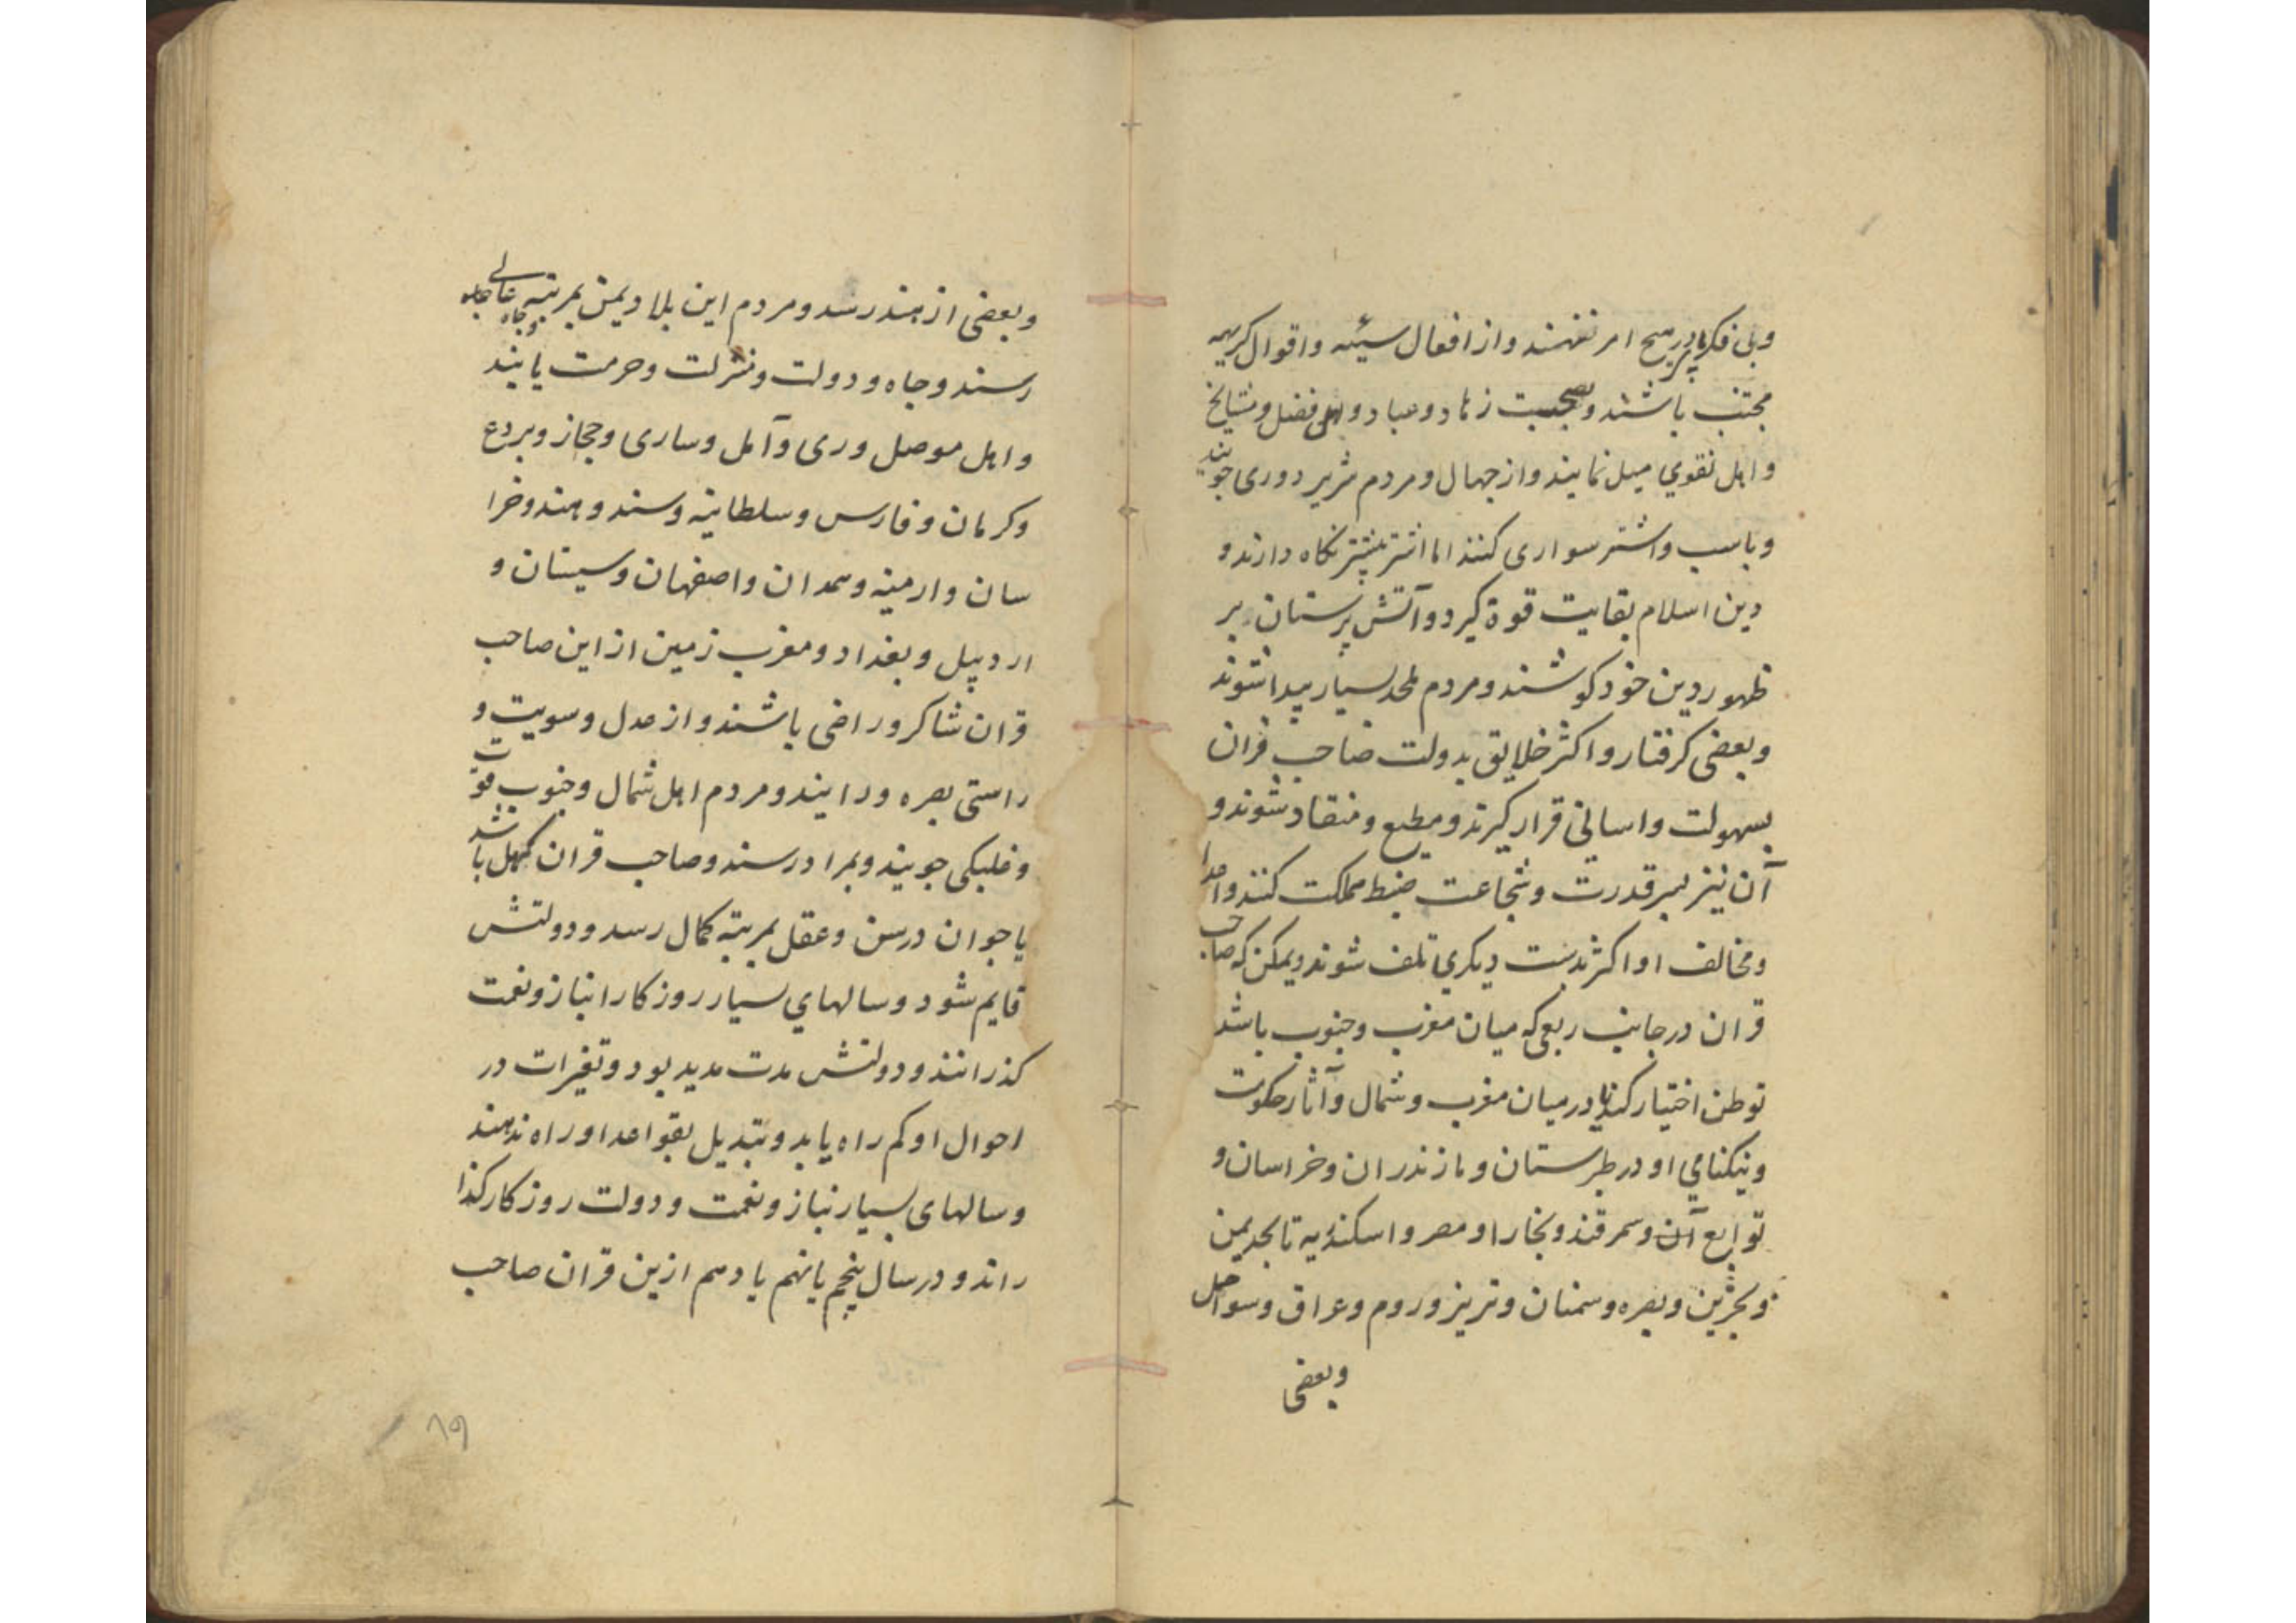 وبی فکر پا در هیچ امر ننهند واز افعال سیئه واقوال کریهه
مجتنب باشند وبصحبت زهاد وعباد واهل فضل ومشایخ
واهل تقوی میل نمایند واز جهال ومردم شریر دوری جویند
وباسب واشتر سواری کنند اما اشتر بیشتر نکاه دارند و
دین اسلام بغایت قوة کیرد وآتش پرستان بر
ظهور دین خود کوشند ومردم ملحد بسیار پیدا شوند
وبعضی کرفتار واکثر خلایق بدولت صاحب قران
بسهولت واسانی قرار کیرند ومطیع ومنقاد شوند و
آن نیز بسر قدرت وشجاعت ضبط مملکت کنند واعدا
ومخالف او اکثر بدست دیکری تلف شوند ویمکن که صاحب
قران در جانب ربعی که میان مغرب وجنوب باشد
توطن اختیار کند یا در میان مغرب وشمال وآثار حکومت
ونیکنامی او در طبرستان ومازندران وخراسان و
توابع آن وسمرقند وبخارا ومصر واسکندریه تا بحد یمن
وبحرین وبصره وسمنان وتبریز وروم وعراق وسواحل
وبعضی
وبعضی از هند رسد ومردم این بلاد یمن بمرتبه عالی وجاه
رسند وجاه ودولت ومنزلت وحرمت یابند
واهل موصل وری وآمل وساری وحجاز وبردع
وکرمان وفارس وسلطانیه وسند وهند وخرا
سان وارمنیه وهمدان واصفهان وسیستان و
اردبیل وبغداد ومغرب زمین از این صاحب
قران شاکر وراضی باشند واز عدل وسویت و
راستی بهره ور آیند ومردم اهل شمال وجنوب قوت
وغلبکی جویند وبمراد رسند وصاحب قران کهل باشد
یا جوان در سن وعقل بمرتبه کمال رسد ودولتش
قایم شود وسالهای بسیار روزکار انباز ونعمت
کذرانند ودولتش مدت مدید بود وتغیرات در
احوال او کم راه یابد وتبدیل بقواعد او راه ندهند
وسالهای بسیار نباز ونعمت ودولت روزکار کذا
راند ودر سال پنجم یا نهم یا دهم ازین قران صاحب
۸۹